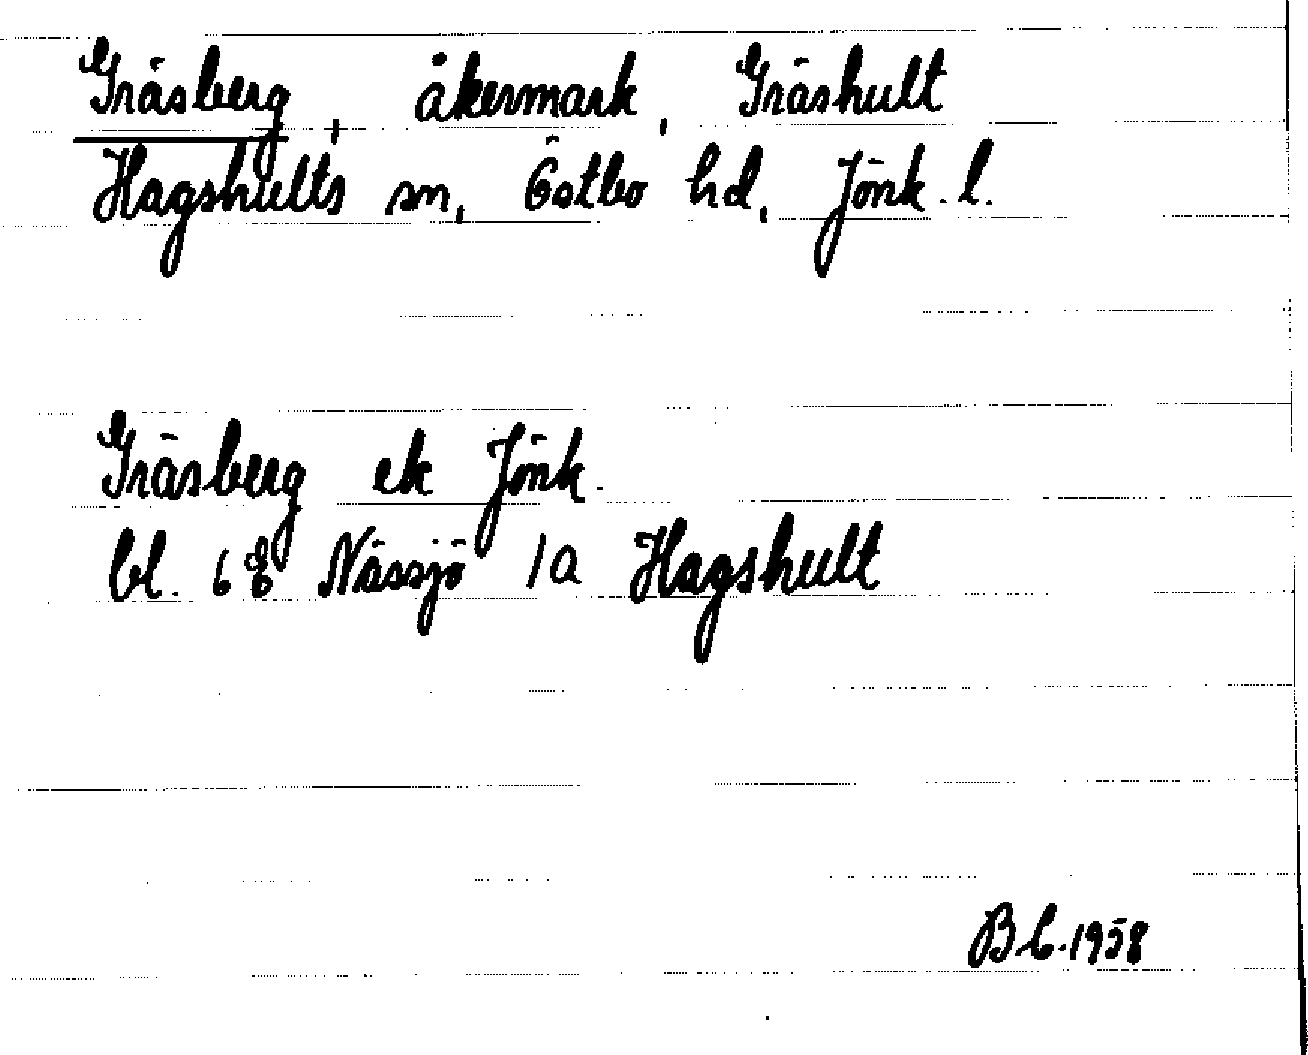 Gräsberg, åkermark, Gräshult
Hagshults sn, Östbo hd, Jönk. l.
Gräsberg ek Jönk.
bl. 6E Nässjö 1a Hagshult
1958